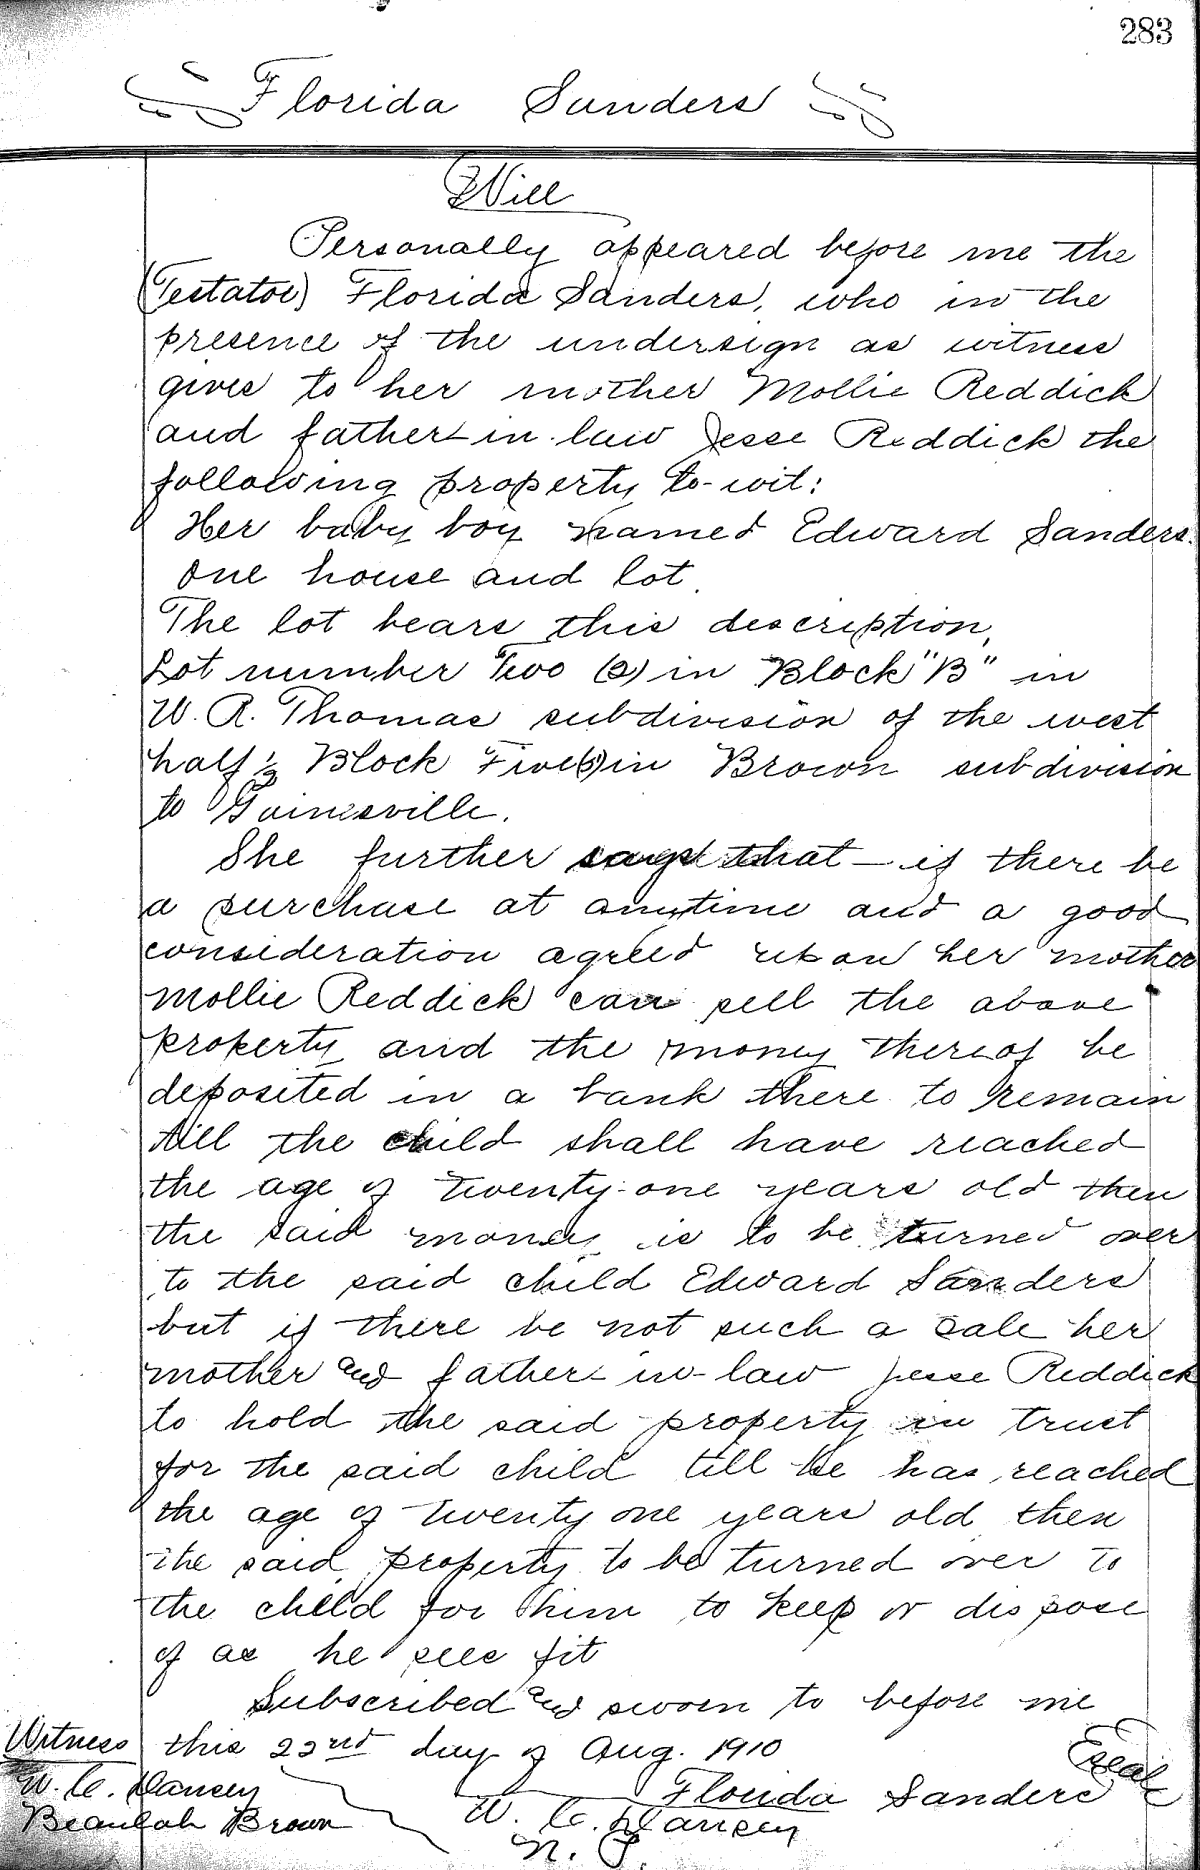 283
Florida Sanders
Will
Personally appeared before me the
(Testator) Florida Sanders, who in the
presence of the undersign as witness
gives to her mother Mollie Reddick
and father-in-law Jesse Reddick the
following property to-wit:
Her baby boy named Edward Sanders.
one house and lot.
The lot bears this description,
Lot number Two (2) in Block "B" in
W. R. Thomas subdivision of the west
half ½ Block Five (5) in Brown subdivision
to Gainesville.
She further says that if there be
a purchase at anytime and a good
consideration agreed upon her mother
Mollie Reddick can sell the above
property and the money thereof be
deposited in a bank there to remain
till the child shall have reached
the age of twenty-one years old then
the said money is to be turned over
to the said child Edward Sanders
but if there be not such a sale her
mother and father-in-law Jesse Reddick
to hold the said property in trust
for the said child till he has reached
the age of twenty one years old then
the said property to be turned over to
the child for him to keep or dispose
of as he sees fit
Subscribed and sworn to before me
Witness this 22nd day of Aug. 1910
Florida Sanders
W. C.
Beaulah Brown
W. C.
N. P.